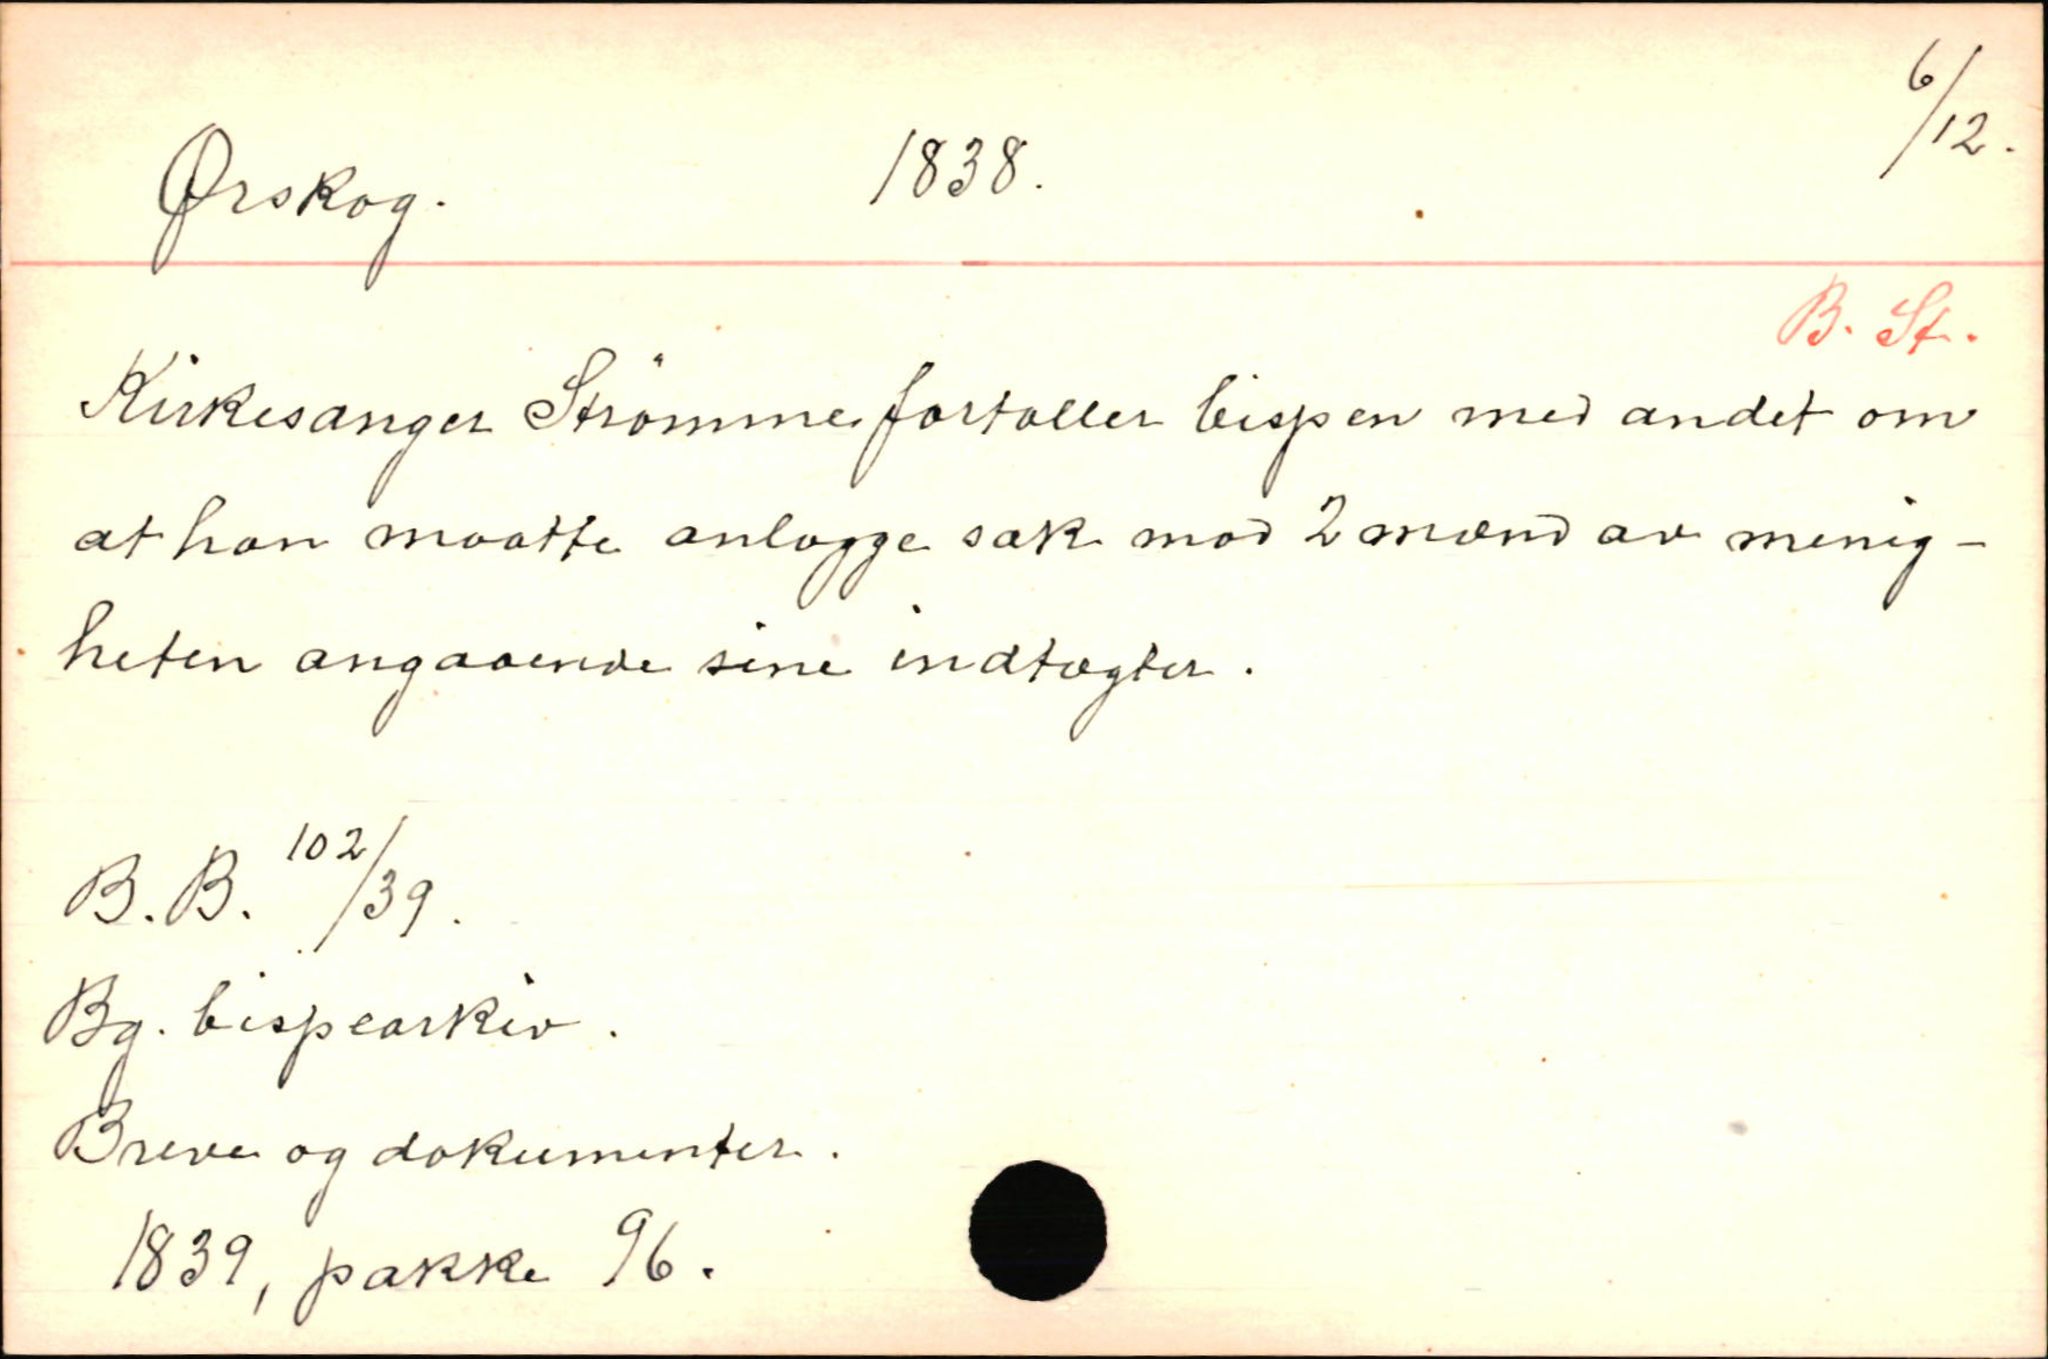 Ørskog. 1838. 6/12.
B. St.
Kirkesanger Strömme fortæller bispen med andet om
at han maatte anlægge sak mod 2 mænd av menig-
heten angaaende sine indtægter.
B. B. 102/39.
Bg. bispearkiv.
Breve og dokumenter.
1839, pakke 96.